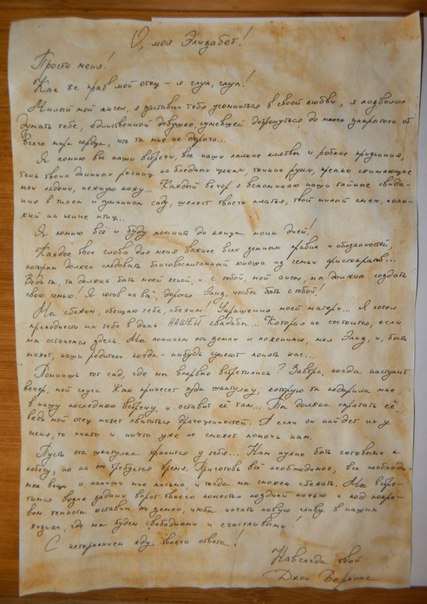 О, моя Элизабет!
Прости меня!
Как же прав мой отец – я глуп, глуп!
Милый мой ангел, я заставил тебя усомниться в своей любви, я позволил
думать тебе, единственной девушке, сумевшей дотронуться до моего запертого от
всего мира сердца, что ты мне не дорога...
Я помню все наши встречи, все наши пылкие клятвы и робкие признания,
тень твоих длинных ресниц на бледных щеках, тонкие руки, сжимающие
мои ладони, нежную кожу... Каждый вечер я вспоминаю наши тайные свида-
ния в тихом и туманном саду, шелест твоего платья, твой милый смех, похо-
жий на пение птиц...
Я помню всё и буду помнить до конца моих дней!
Каждое твое слово для меня важнее всех земных правил и обязанностей,
которым должен следовать благовоспитанный юноша из семьи аристократов...
Ведь ты, ты должна быть моей женой, и с тобой, мой ангел, мы должны создать
свою семью. Я готов на всё, дорогая Элиза, чтобы быть с тобой!
Мы сбежим, обещаю тебе, сбежим! Украшения моей матери... Я хотел
преподнести их тебе в день НАШЕЙ свадьбы... Которая не состоится, если
мы останемся здесь. Мы покинем эти земли и поженимся, моя Элиза, и, быть
может, наши родители когда-нибудь сумеют понять нас...
Помнишь тот сад, где мы впервые встретились? Завтра, когда наступит
вечер, мой слуга Жан принесет туда шкатулку, которую ты подарила мне
в нашу последнюю встречу, и оставит её там... Ты должна спрятать её
ведь мой отец может хватиться драгоценностей. А если он найдет их у
меня, то никто и ничто уже не сможет помочь нам.
Пусть эта шкатулка хранится у тебя... Нам нужно быть готовыми к
побегу, но на это требуется время. Приготовь всё необходимое, все необходи-
мые вещи и напиши мне письмо, и тогда мы сможем сбежать. Мы встре-
тимся возле задних ворот твоего поместья поздней ночью и под покро-
вом темноты оставим эти земли, чтобы начать новую главу в наших
жизнях, где мы будем свободными и счастливыми!
С нетерпением жду твоего ответа!
Навсегда твой
Джон